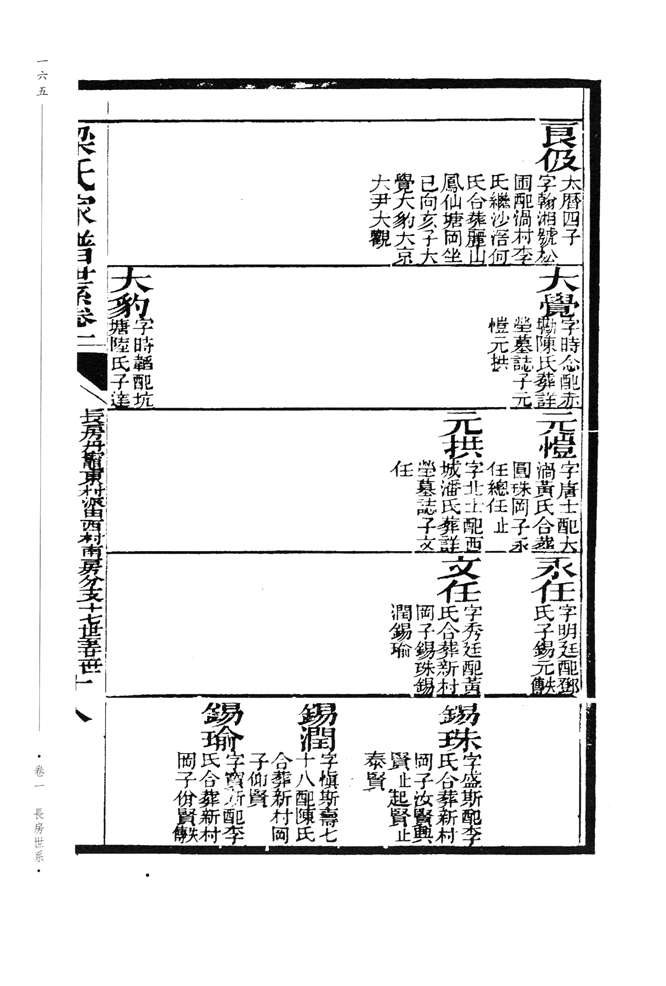 一六五
良伋
太暦四子
字翰湘號松
圃配渦村李
氏繼沙浯何
氏合葬麗山
鳳仙塘岡坐
已向亥子大
覺大豹大京
大尹大觀
大覺
字時念配赤
磡陳氏葬詳
塋墓誌子元
愷元拱
大豹
字時韜配坑
塘陸氏子達
元愷
字唐士配大
渦黃氏合葬
圓珠岡子永
任總任止
元拱
字北士配西
城潘氏葬詳
塋墓誌子文
任
永任
字明廷配鄧
氏子錫元傳
文任
字秀廷配黃
氏合葬新村
岡子錫珠錫
潤錫瑜
錫珠
字盛斯配李
氏合葬新村
岡子汝賢興
賢止起賢止
泰賢
錫潤
字慎斯壽七
十八配陳氏
合葬新村岡
子仰賢
錫瑜
字寶斯配李
氏合葬新村
岡子份賢
梁氏家譜世系卷一
村派由西村南房分支十七世
十八
卷一 長房世系